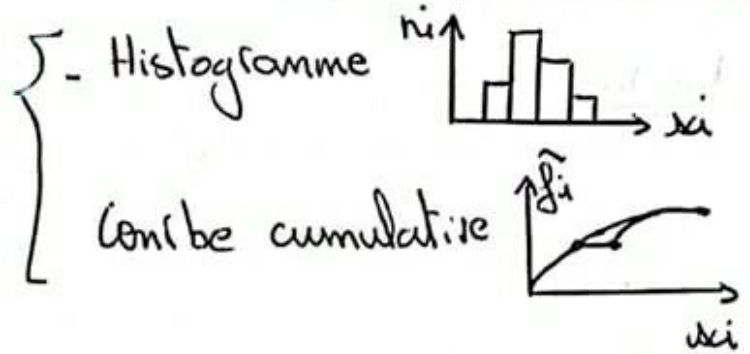 - Histogramme
ni
xi
Courbe cumulative
f̃i
xi